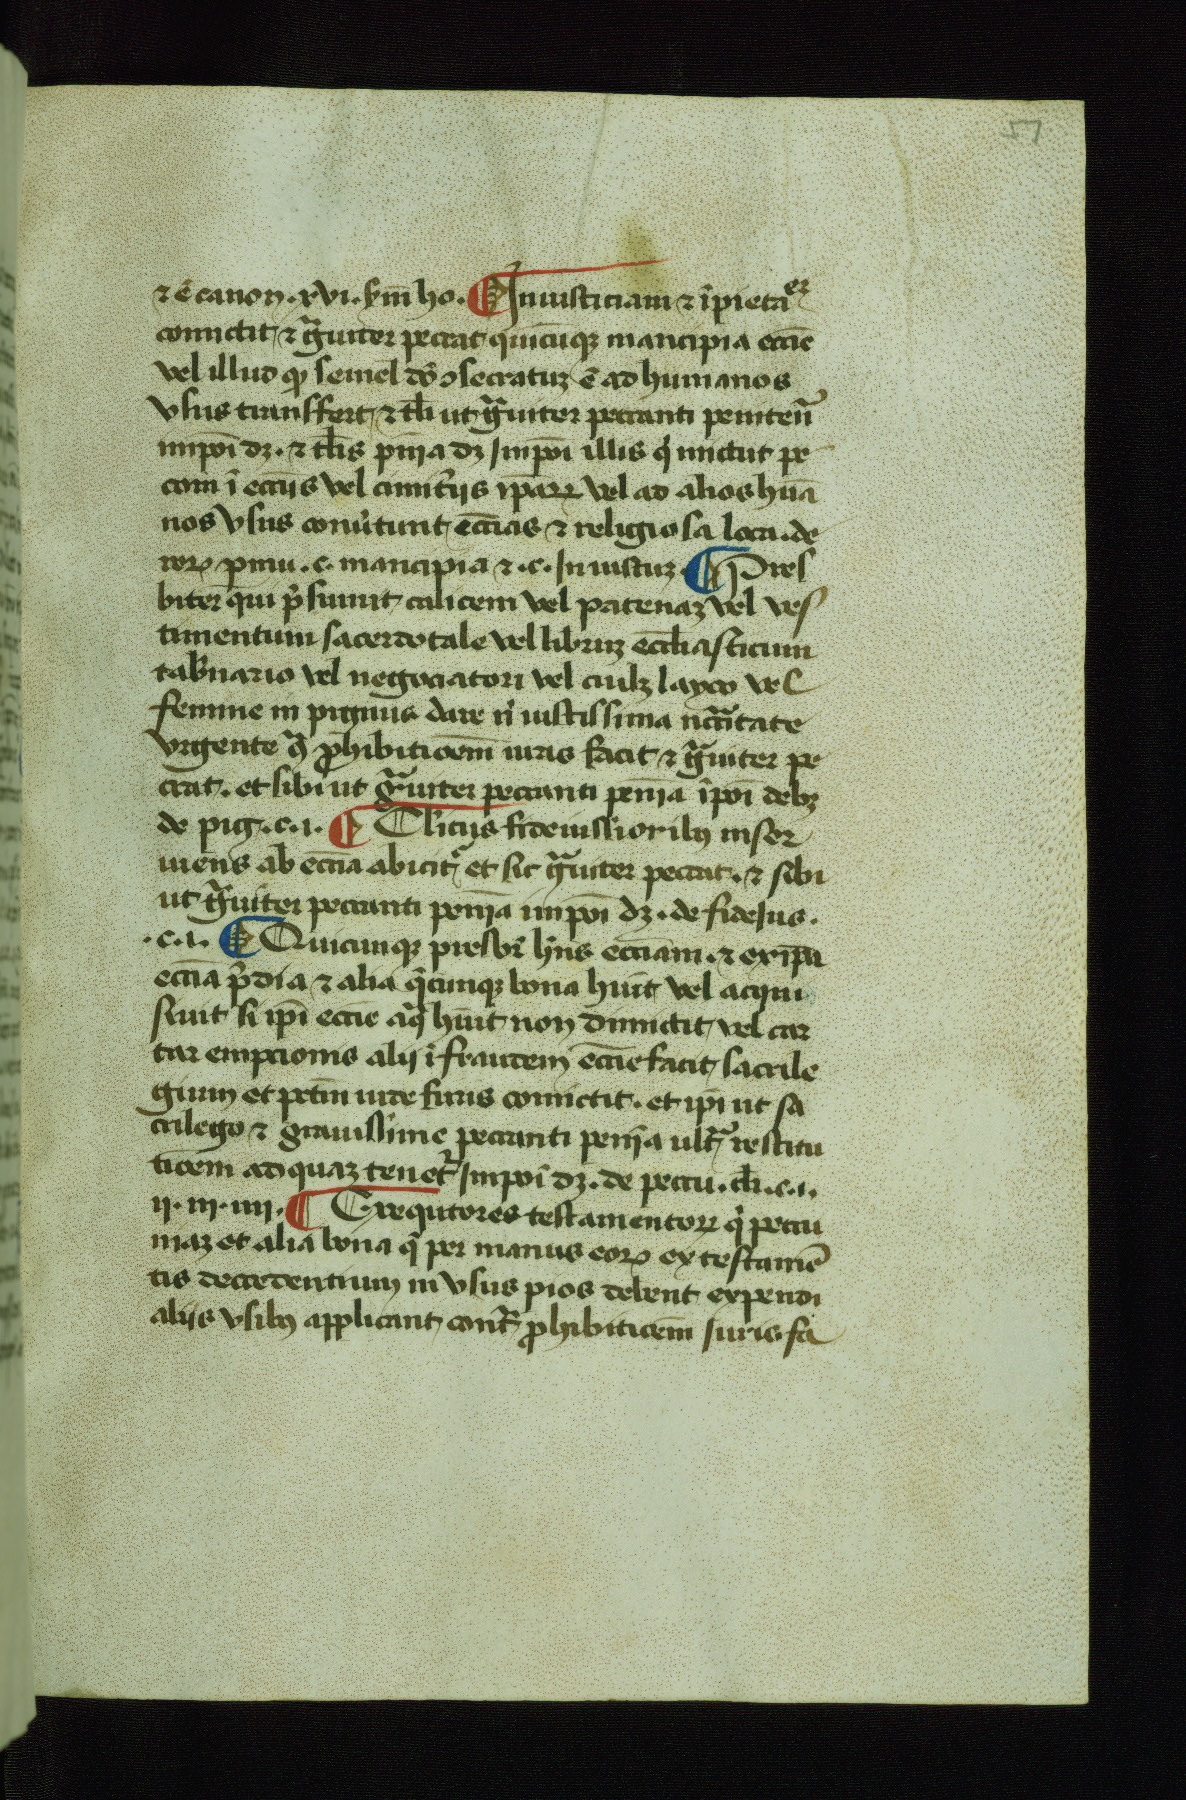 ⁊ ē canon. xvi. ẜm ho. ¶ Iniusticiam ⁊ īpietatē
comictit ⁊ gͣuiter peccat quicūqꝫ mancipia eccīe
vel illud qđ semel dō ↄsecratuꝫ ē ad humanos
vsus transffert ⁊ tłi ut gͣuiter peccanti peniteñ
impoī dꝫ. ⁊ tłis pñia dꝫ Impoī illis qͥ mictūt pe
com ī ecciīs vel cimit̄iis ipaꝝ vel ad alios hūa
nos vsus conu̓tunt eccīas ⁊ religiosa loca. de
reꝝ pmu. c. mancipia ⁊. c. Iniustuꝫ. ¶ Pres
biter qui p̄sumit calicem vel patenaꝫ vel ves
timentum sacerdotale vel libruꝫ ecclīasticum
tab̄nario vel negociatori vel cuilꝫ layco vel
femine in pignus dare nͥ iustissima nc̄citate
vrgente ꝯͣ ꝓhibiticēm iuris facit ⁊ gͣuiter pe
ccat. et sibi ut gͣuiter peccanti penīa īpoī debꝫ
de pig. c. i. ¶ Cl̄icus fideiussioribꝰ inser
uiens ab eccīa abicit̄ et sic gͣuiter peccat. ⁊ sibi
ut gͣuiter peccanti penīa impoī dꝫ. de fideius.
. c. i. ¶ Quicunqꝫ presbr̄ hn̄s eccīam. ⁊ ex ip̄a
eccīa p̄dia ⁊ alia q̄cunqꝫ bona hūit vel acqui
siuit si ip̄i eccīe a qͣ hūit non dimictit vel car
tar empcionis alii ī fraudem eccīe facit sacrile
gium et pctm̄ iude furis comictit. et ip̄i ut sa
crilego ⁊ grauissime peccanti penīa ultͣ restitu
ticēm ad quaꝫ tenet̄ Impoī dꝫ. de pecu. cł. c. i.
ii. iii. iiii. ¶ Exequtores testamentoꝝ qͥ pecu
niaꝫ et alia bona q̄ per manus eoꝝ ex testamē
tis decedentium in vsus pios debent expendi
aliis vsibꝰ applicant contͣ ꝓhibiticēm iuris fa